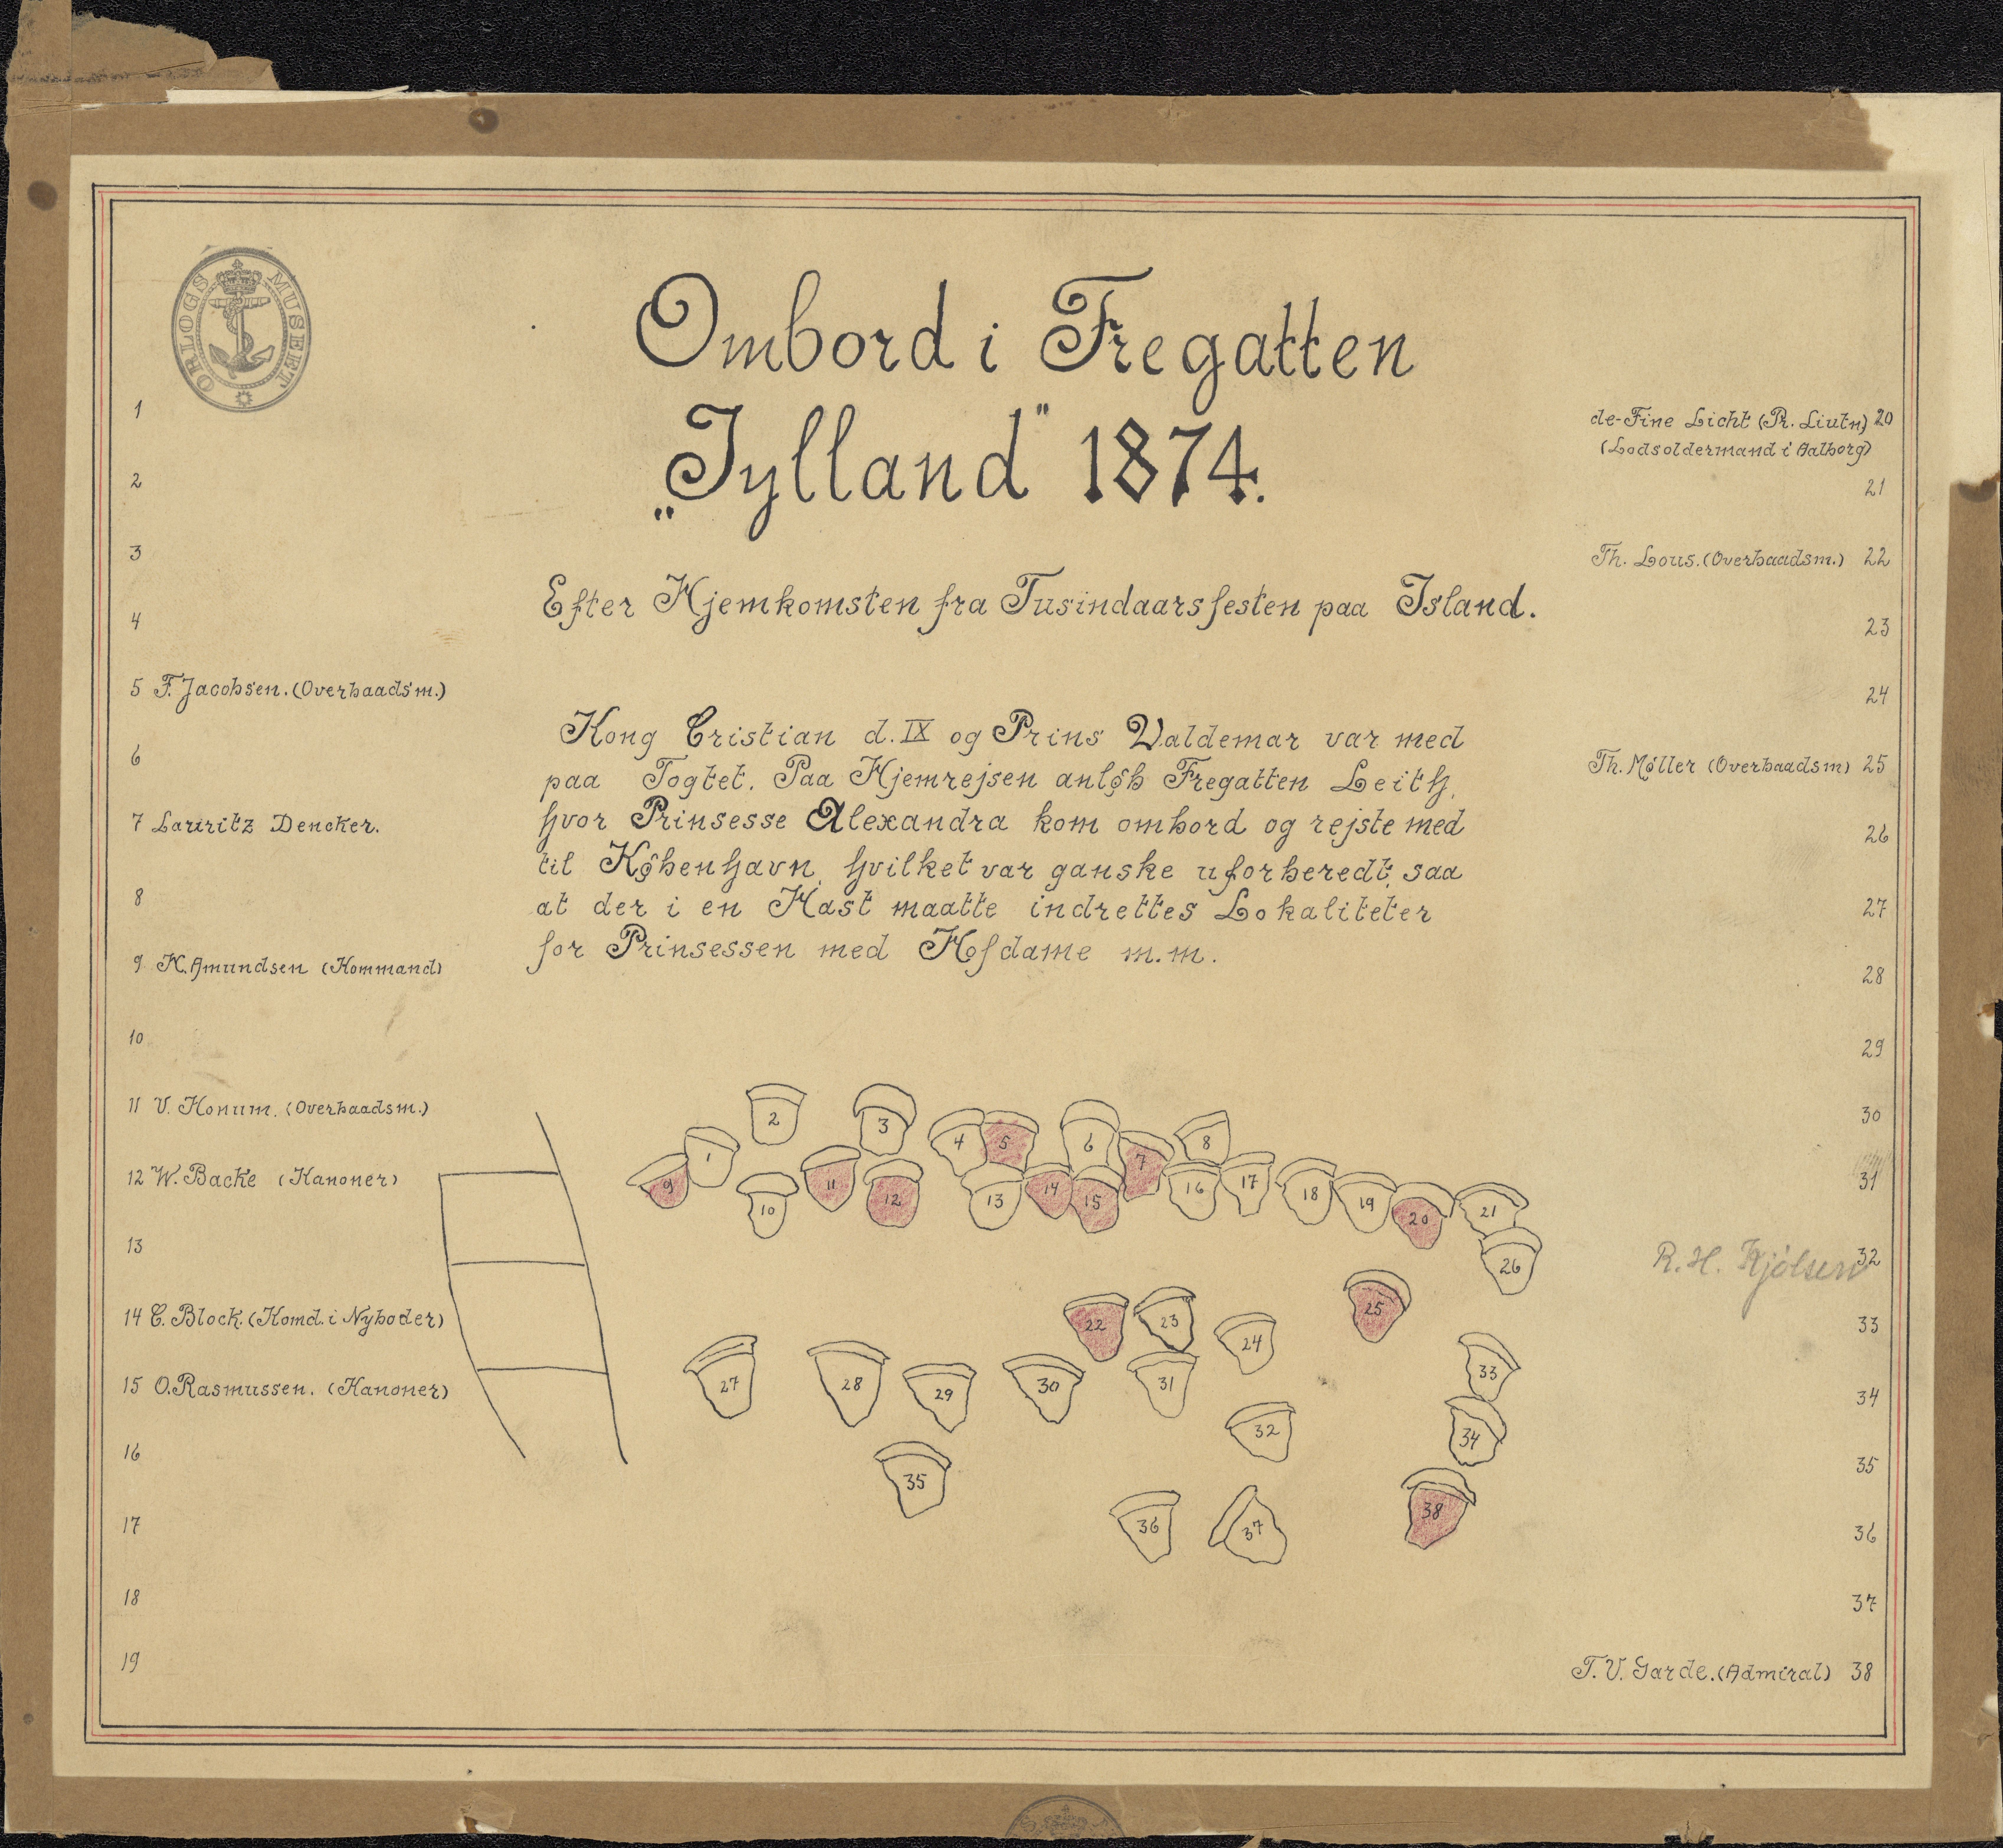 ORLOGS MUSEET
Ombord i Fregatten
„Jylland" 1874.
Efter Hjemkomsten fra Tusindaarsfesten paa Island.
Kong Cristian d. IX og Prins Valdemar var med
paa Togtet. Paa Hjemrejsen anløb Fregatten Leith,
hvor Prinsesse Alexandra kom ombord og rejste med
til København, hvilket var ganske uforberedt, saa
at der i en Hast maatte indrettes Lokaliteter
for Prinsessen med Hofdame m.m.
1
2
3
4
5 F. Jacobsen. (Overbaadsm.)
6
7 Lauritz Dencker.
8
9 K. Amundsen (Kommand)
10
11 V. Honum. (Overbaadsm.)
12 W. Backe (Kanoner)
13
14 C. Block. (Komd. i Nyboder)
15 O. Rasmussen. (Kanoner)
16
17
18
19
de-Fine Licht (Pr. Liutn) 20
(Lodsoldermand i Aalborg)
21
Th. Lous. (Overbaadsm.) 22
23
24
Th. Møller (Overbaadsm) 25
26
27
28
29
30
31
R. H. Kjølsen 32
33
34
35
36
37
T. V. Garde. (Admiral) 38
2 3 4 5 6 8
1 7
9 10 11 12 13 14 15 16 17 18 19 20 21
26
22 23 24 25
27 28 29 30 31 33
32 34
35
36 37 38